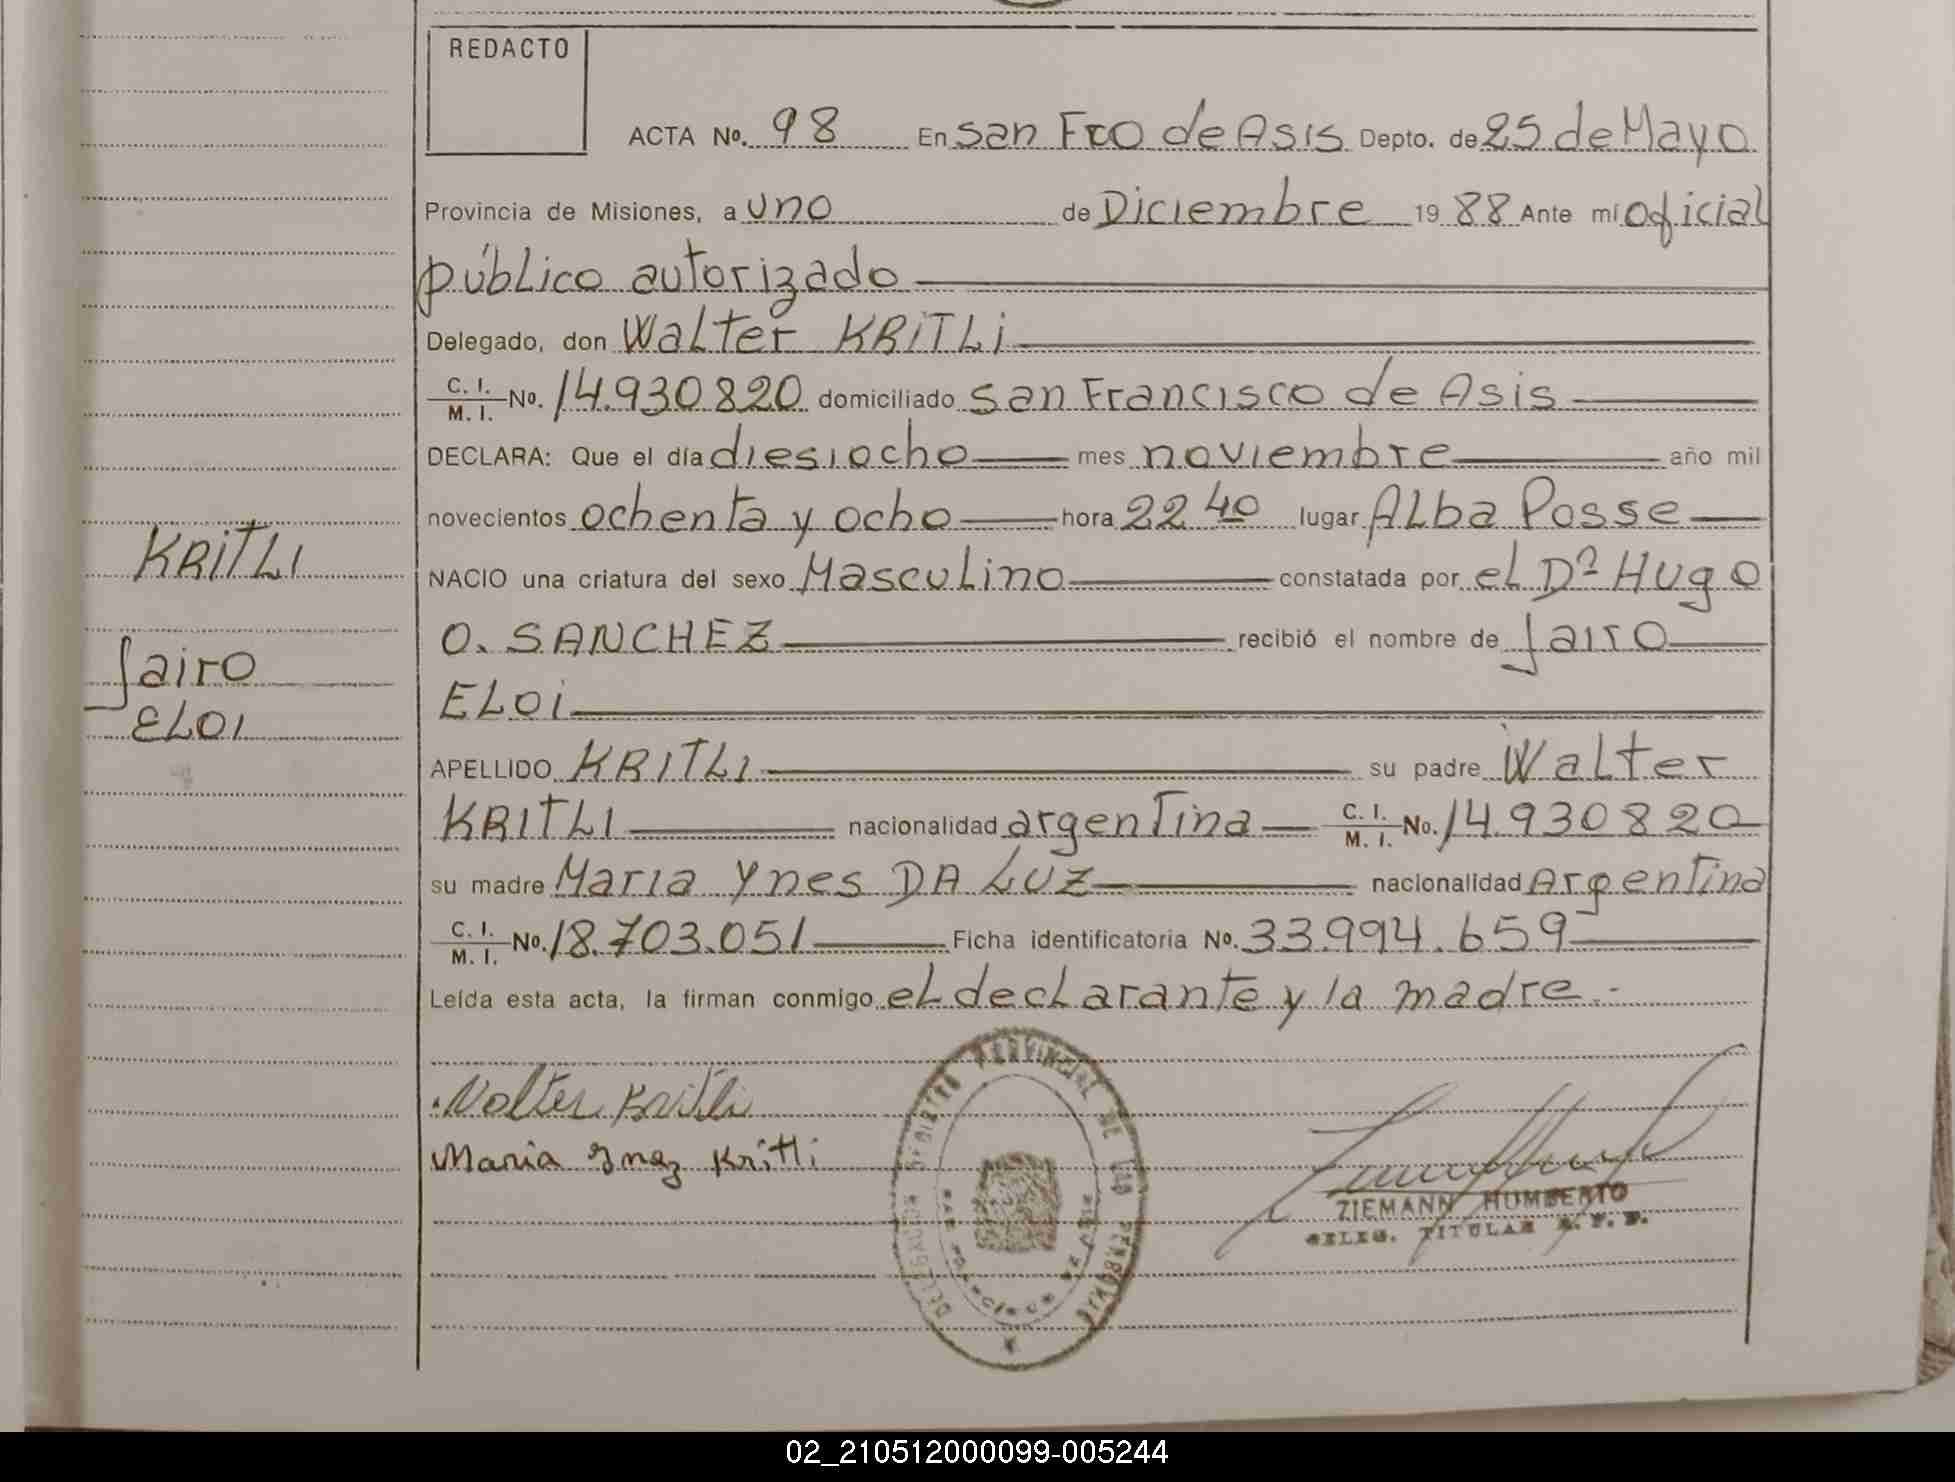 REDACTO
ACTA Nº. 98 En San Fco de Asis Depto. de 25 de Mayo
Provincia de Misiones, a uno de Diciembre 19 88 Ante mí oficial
público autorizado
Delegado, don Walter KRITLI
C. I. M. I. No. 14.930820 domiciliado San Francisco de Asis
DECLARA: Que el día diesiocho mes noviembre año mil
novecientos ochenta y ocho hora 22 40 lugar Alba Posse
KRITLI
NACIO una criatura del sexo Masculino constatada por el Dr Hugo
O. SANCHEZ recibió el nombre de Jairo
Jairo
ELOI
ELOI
APELLIDO KRITLI su padre Walter
KRITLI nacionalidad argentina C. I. M. I. No. 14.930820
su madre Maria Ynes DA LUZ nacionalidad Argentina
C. I. M. I. No. 18.703.051 Ficha identificatoria No. 33.994.659
Leída esta acta, la firman conmigo el declarante y la madre.-
Walter Kritli
Maria Ynez Kritli
DELEGACION REGISTRO PROVINCIAL DE LAS PERSONAS
SAN FRANCISCO DE ASIS
ZIEMANN HUMBERTO
DELEG. TITULAR R. P. P.
02_210512000099-005244